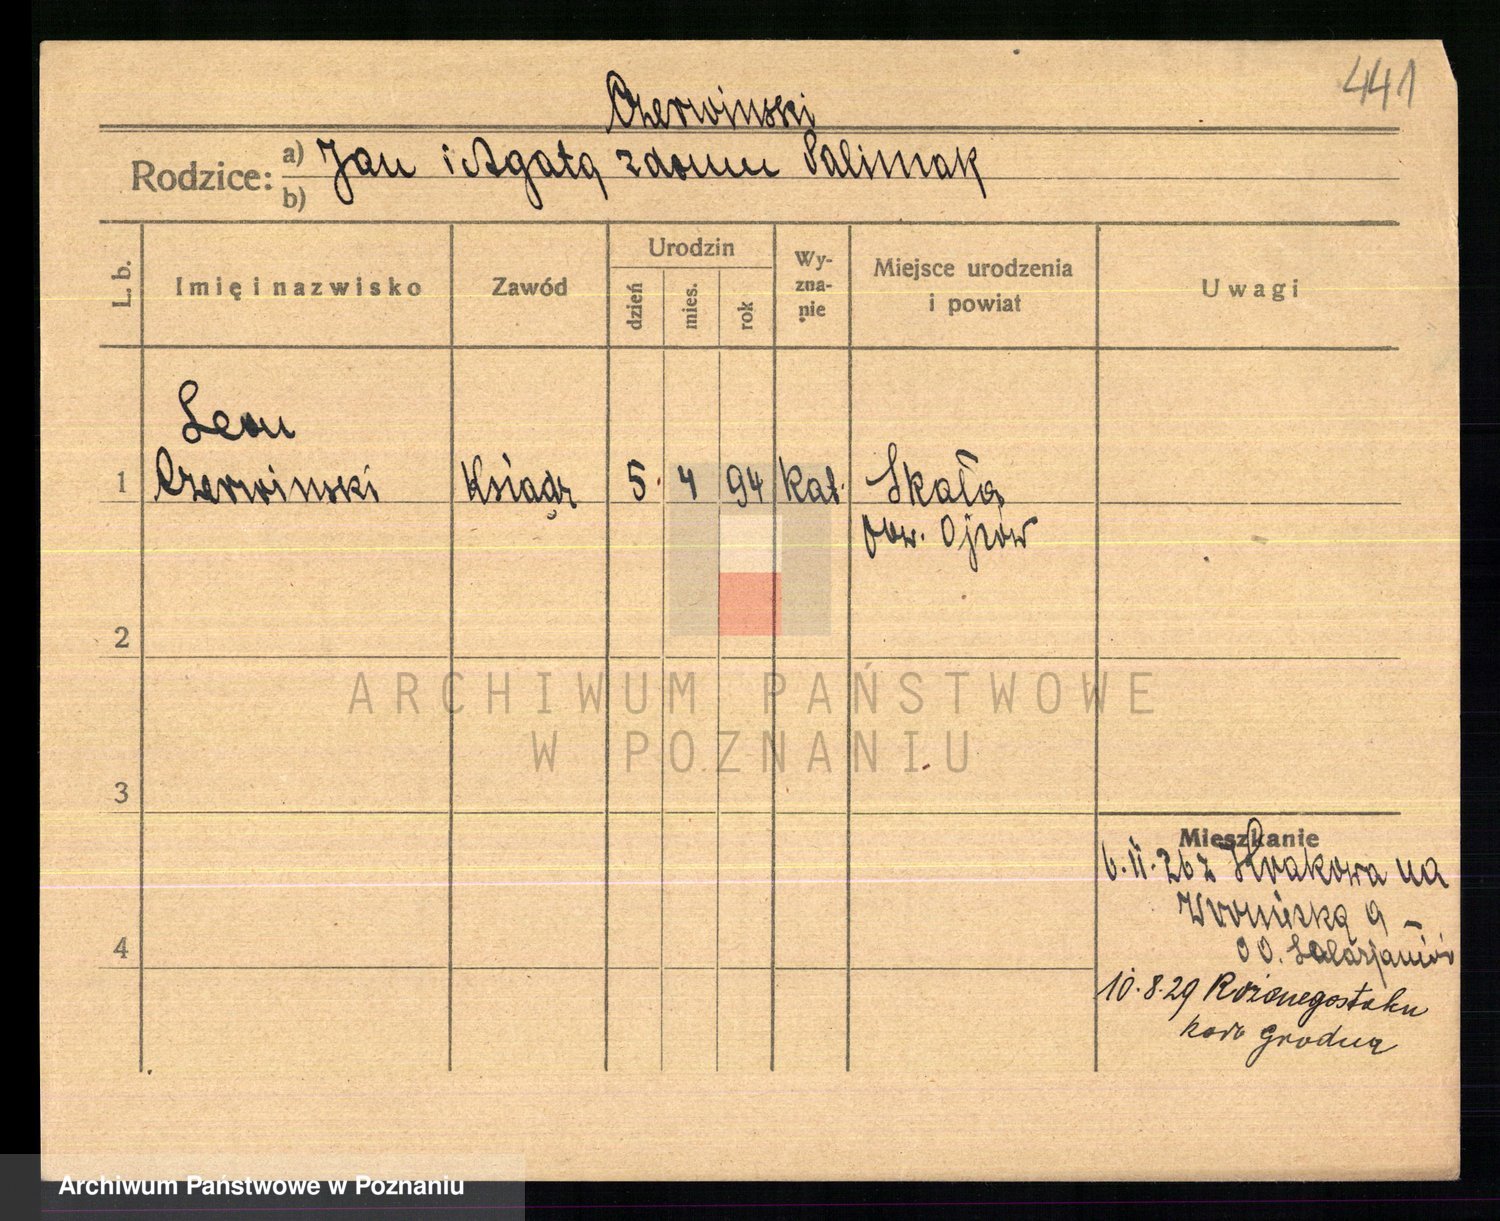 441
Czerwinski
Rodzice: a) Jan i Agata z domu Salimak
b)
L. b.
Imię i nazwisko
Zawód
Urodzin
dzień
mies.
rok
Wy-
zna-
nie
Miejsce urodzenia
i powiat
Uwagi
Leon
1 Czerwinski Ksiądz 5. 4 94 kat. Skała
pow. Ojców
2
ARCHIWUM PAŃSTWOWE
W POZNANIU
3
Mieszkanie
6.II.26 z Krakowa na
Wroniecką 9 –
4
O O. Salezjanów
10.8.29 Różanegostoku
koło Grodna
Archiwum Państwowe w Poznaniu